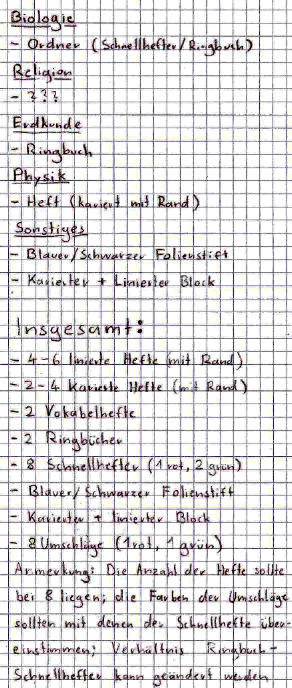 Biologie
- Ordner (Schnellhefter/Ringbuch)
Religion
- ???
Erdkunde
- Ringbuch
Physik
- Heft (kariert mit Rand)
Sonstiges
- Blauer/Schwarzer Folienstift
- Karierter + Linierter Block
Insgesamt:
- 4-6 linierte Hefte (mit Rand)
- 2-4 Karierte Hefte (mit Rand)
- 2 Vokabelhefte
- 2 Ringbücher
- 8 Schnellhefter (1 rot, 2 grün)
- Blauer/Schwarzer Folienstift
- Karierter + linierter Block
- 8 Umschläge (1 rot, 1 grün)
Anmerkung: Die Anzahl der Hefte sollte
bei 8 liegen; die Farben der Umschläge
sollten mit denen der Schnellhefte über-
einstimmen; Verhältnis Ringbuch-
Schnellhefter kann geändert werden